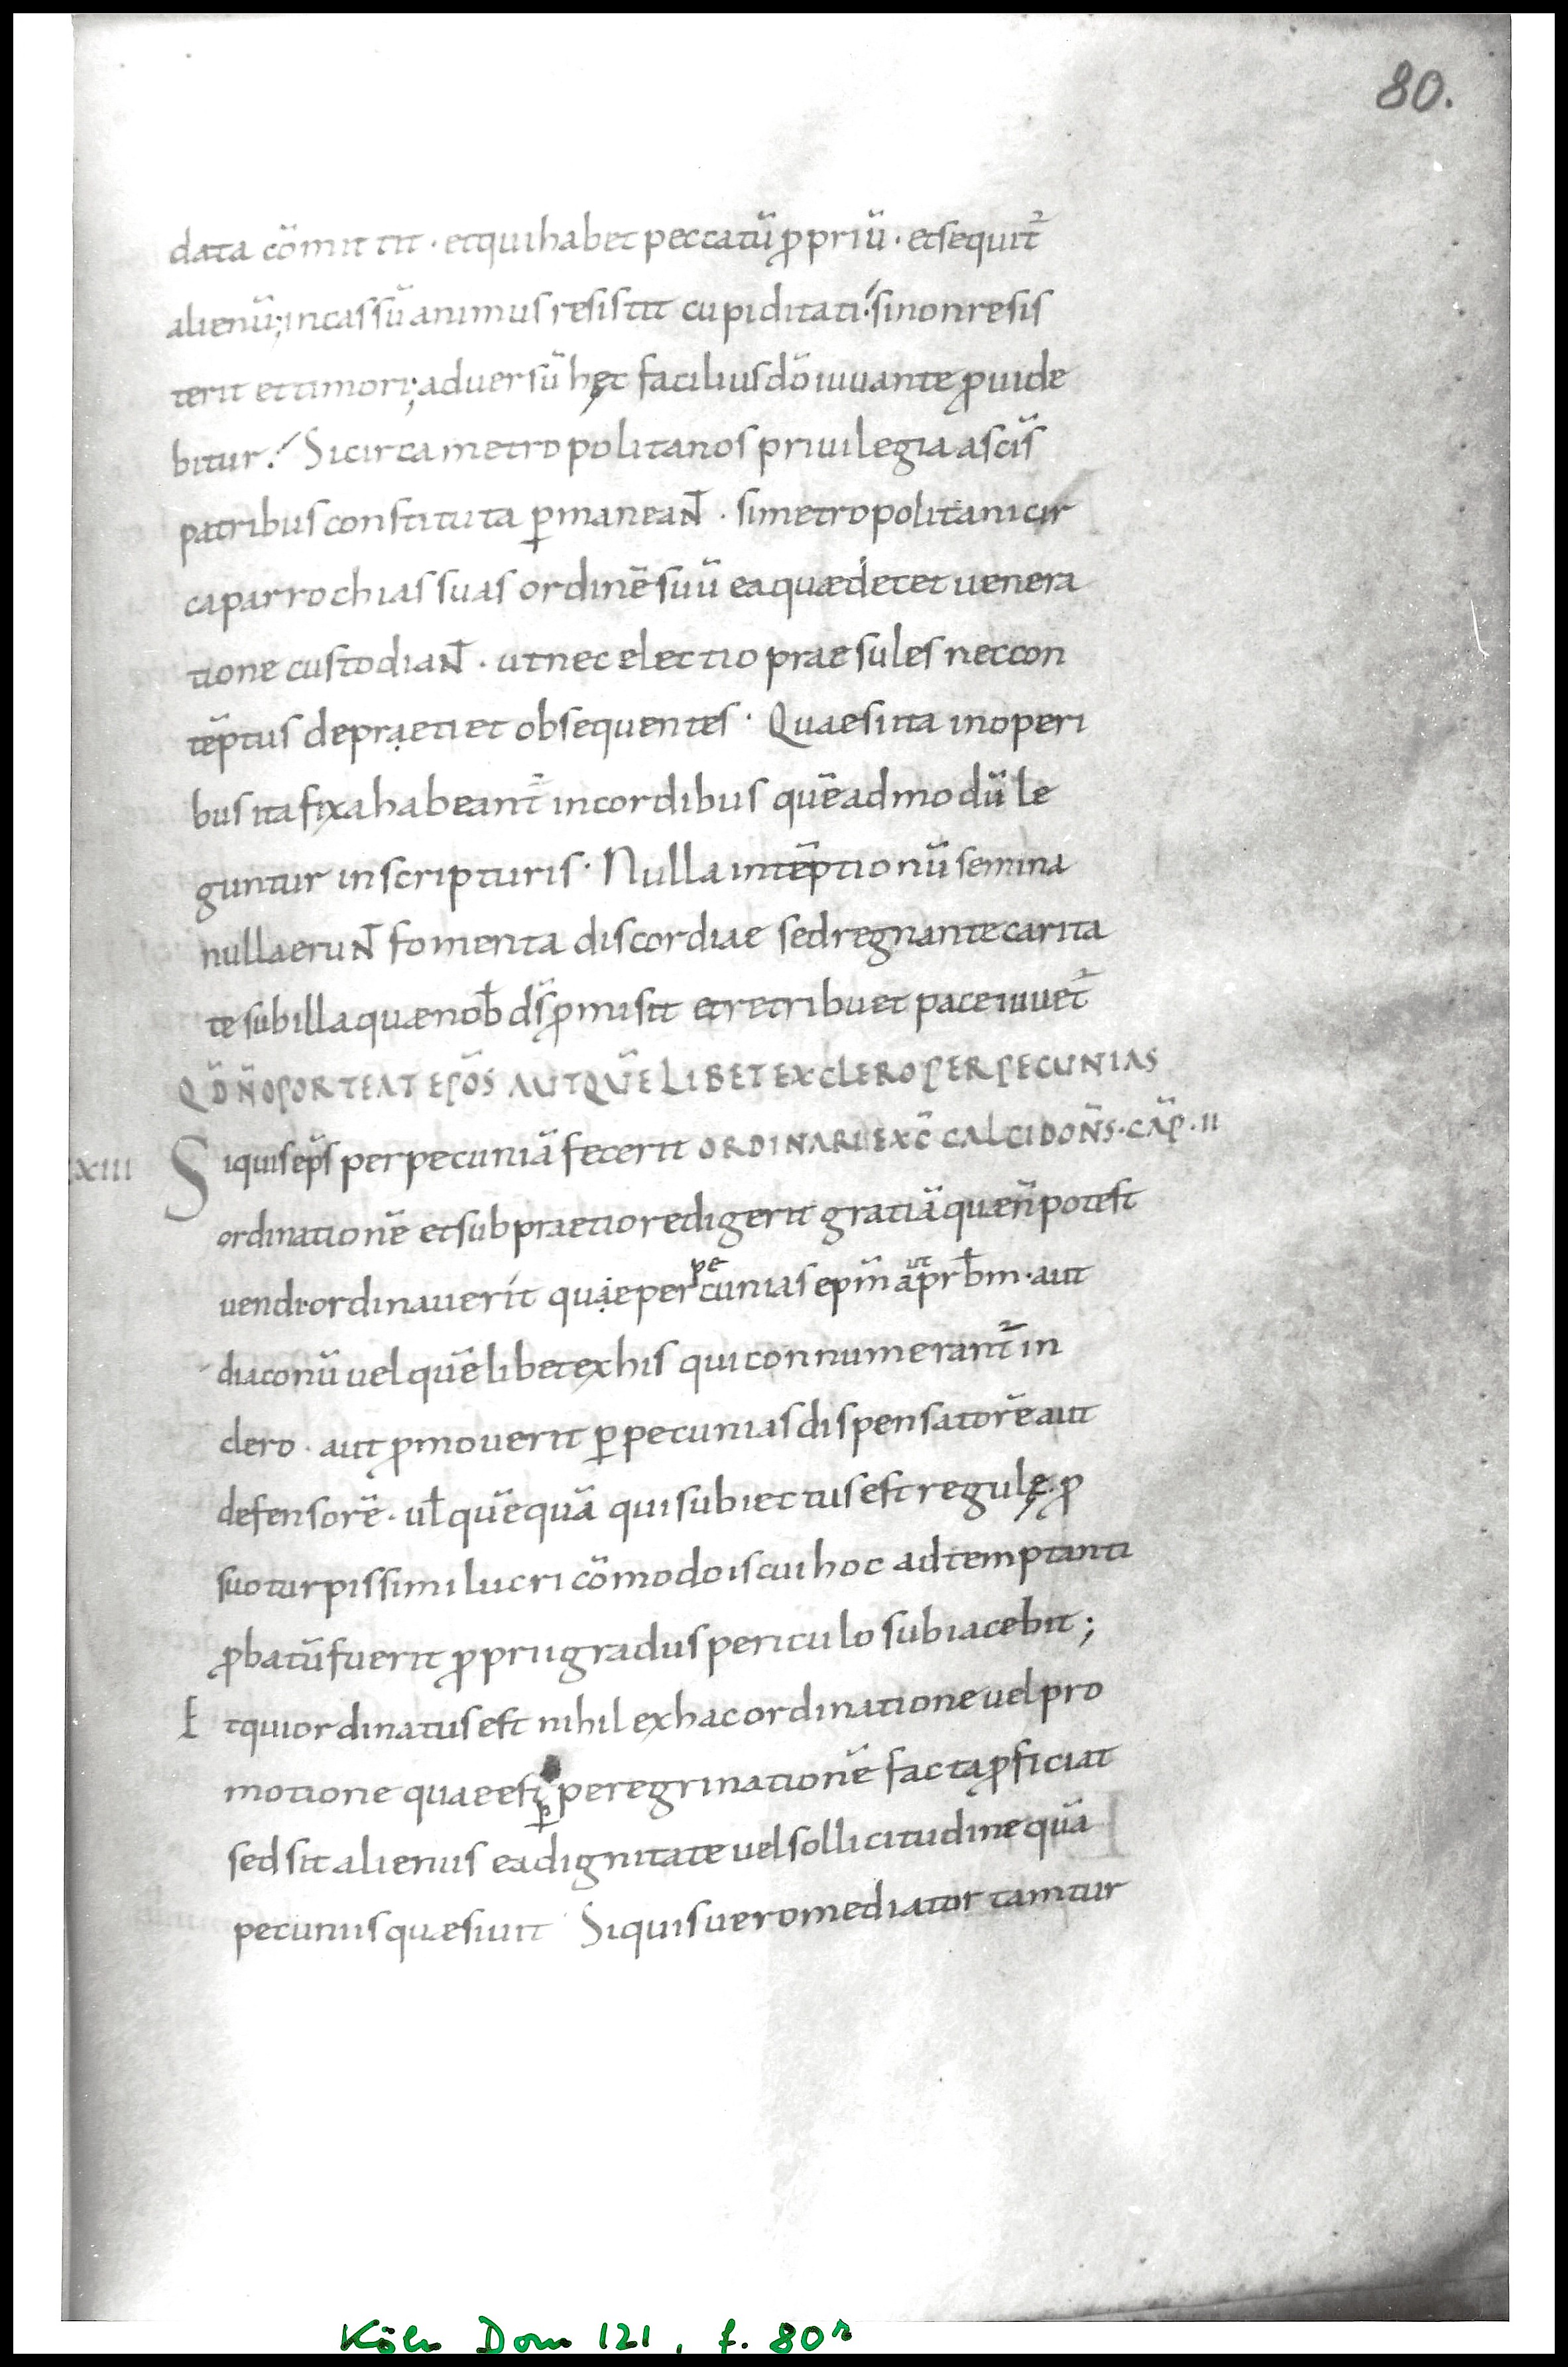 80.
data cōmittit · et qui habet peccatū ꝓpriū · et sequit᷑
alienū; incassū animus resistit cupiditati · si non resis
terit et timori; adversū hęc facilius dō iuuante ꝓuide
bitur · Si circa metropolitanos privilegia a scīs
patribus constituta ꝑmaneaNT̄ · si metropolitani cir
ca parrochias suas ordinē suū ea quæ decet uenera
tione custodiaNT̄ · ut nec electio praesules nec con
tēptus depraetiet obsequentes · Quae si ita in operi
bus ita fixa habeant᷑ in cordibus quēadmodū le
guntur in scripturis · Nulla intēptionū semina
nulla eruNT̄ fomenta discordiae sed regnante carita
te sub illa quæ nob̄ d̄s ꝓmisit et retribuet pace iuuet᷑
QD̄ N̄ OPORTEAT EPŌS AUT QUĒLIBET EX CLERO PER PECUNIAS
XIII Siquis ep̄s per pecuniā fecerit ORDINARI EX C̄ CALCIDON̄S · CĀP · II
ordinationē et sub praetio redigerit gratiā quæ n̄ potest
uendi · ordinauerit quae per pecunias ep̄m aut pr̄bm · aut
diaconū uel quēlibet ex his qui connumerant᷑ in
clero · aut ꝓmouerit ꝑ pecunias dispensatorē aut
defensorē · ul̄ quēquā qui subiectus est regulę · ꝓ
suo turpissimi lucri cōmodo is cui hoc adtemptanti
ꝓbatū fuerit ꝓprii gradus periculo subiacebit;
Et qui ordinatus est nihil ex hac ordinatione uel pro
motione quae est ꝑ peregrinationē facta ꝓficiat
sed sit alienus ea dignitate uel sollicitudine quā
pecuniis quæsiuit Siquis uero mediator tam tur
Köln Dom 121, f. 80r